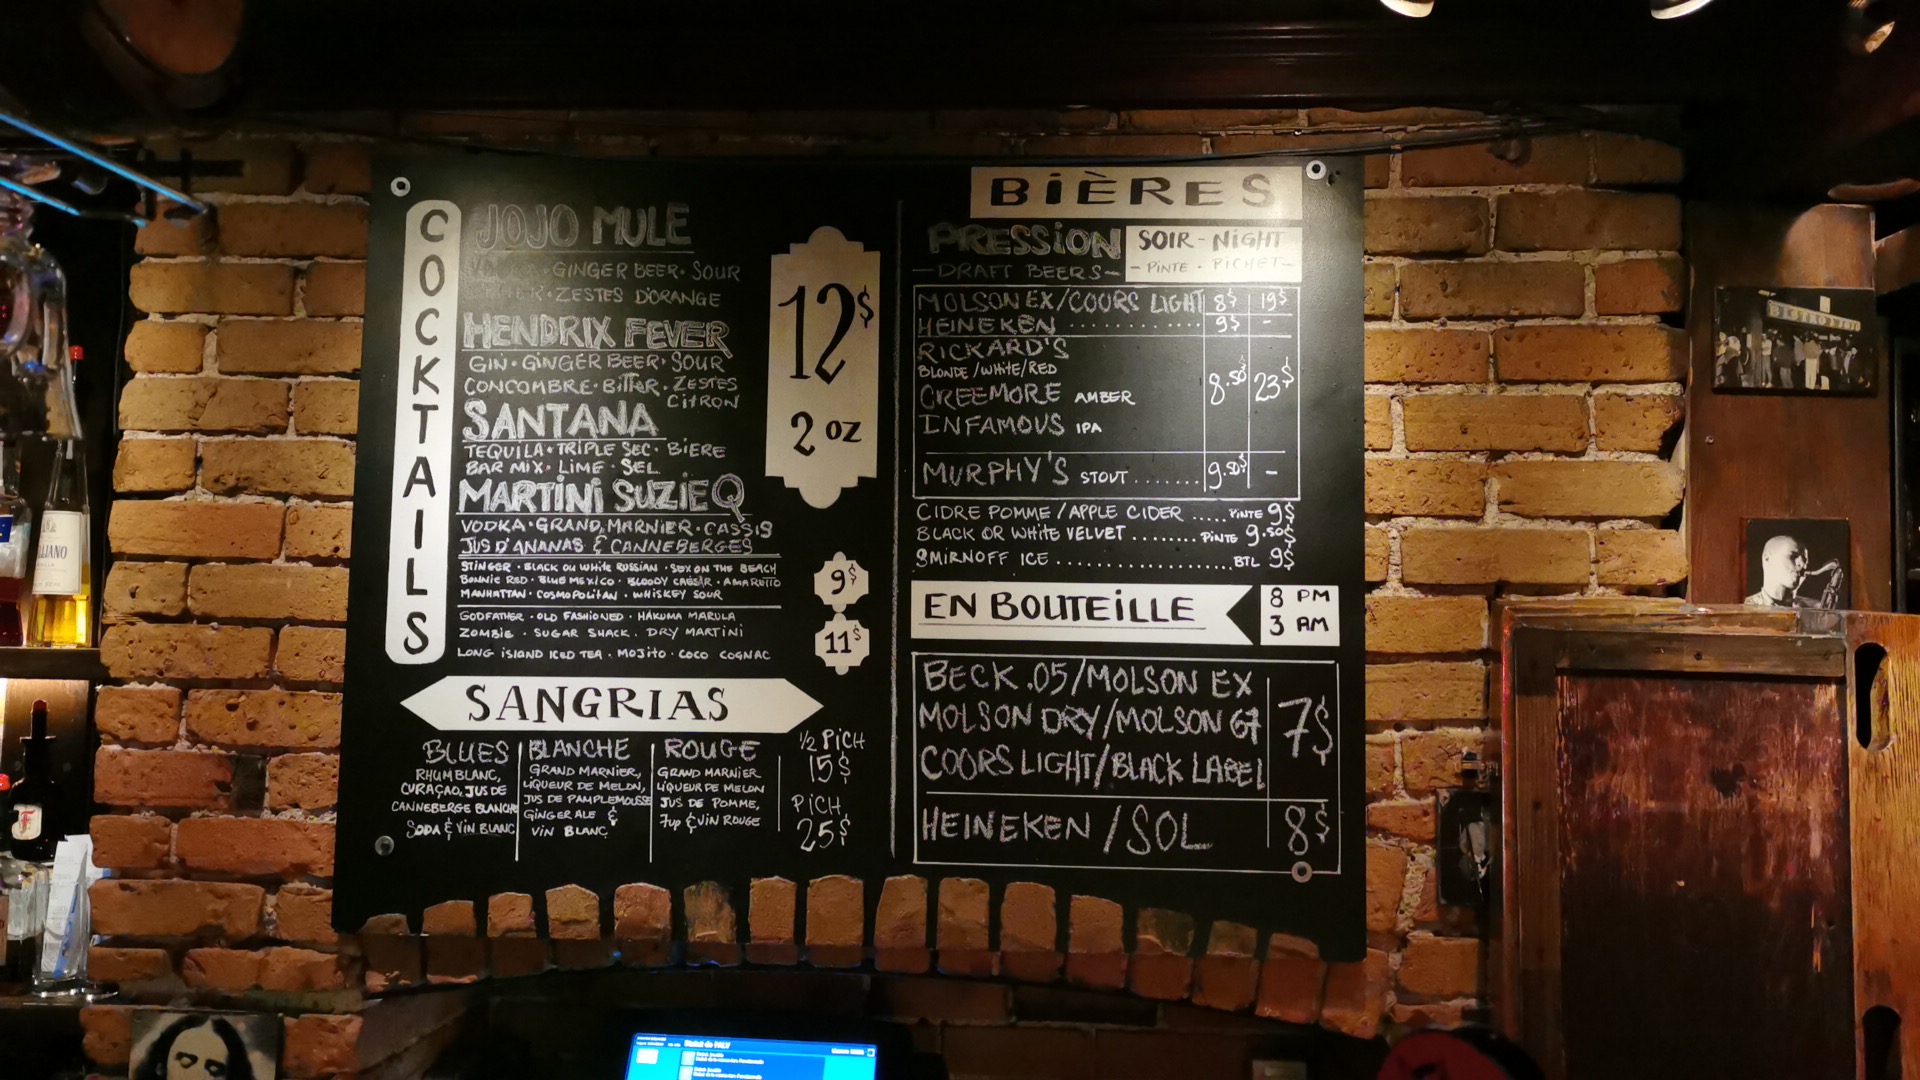 COCKTAILS
JOJO MULE
GINGER BEER · SOUR
ZESTES D'ORANGE
HENDRIX FEVER
GIN · GINGER BEER · SOUR
CONCOMBRE · BITTER · ZESTES
CITRON
SANTANA
TEQUILA · TRIPLE SEC · BIERE
BAR MIX · LIME · SEL
MARTINI SUZIE Q
VODKA · GRAND MARNIER · CASSIS
JUS D'ANANAS & CANNEBERGES
12$
2 OZ
STINGER · BLACK OU WHITE RUSSIAN · SEX ON THE BEACH
BONNIE RED · BLUE MEXICO · BLOODY CAESAR · AMARETTO
MANHATTAN · COSMOPOLITAN · WHISKEY SOUR
9$
GODFATHER · OLD FASHIONED · HAKUNA MARULA
ZOMBIE · SUGAR SHACK · DRY MARTINI
LONG ISLAND ICED TEA · MOJITO · COCO COGNAC
11$
SANGRIAS
BLUES
RHUM BLANC,
CURAÇAO, JUS DE
CANNEBERGE BLANCHE
SODA & VIN BLANC
BLANCHE
GRAND MARNIER,
LIQUEUR DE MELON,
JUS DE PAMPLEMOUSSE
GINGER ALE &
VIN BLANC
ROUGE
GRAND MARNIER
LIQUEUR DE MELON
JUS DE POMME,
7UP & VIN ROUGE
1/2 PICH
15$
PICH
25$
BIÈRES
PRESSION
- DRAFT BEERS -
SOIR - NIGHT
- PINTE · PICHET -
MOLSON EX/COORS LIGHT 8$ 19$
HEINEKEN .......... 9$ -
RICKARD'S
BLONDE/WHITE/RED
CREEMORE AMBER 8.50$ 23$
INFAMOUS IPA
MURPHY'S STOUT ....... 9.50$ -
CIDRE POMME / APPLE CIDER ..... PINTE 9$
BLACK OR WHITE VELVET ........ PINTE 9.50$
SMIRNOFF ICE .................. BTL 9$
EN BOUTEILLE
8 PM
3 AM
BECK .05/MOLSON EX
MOLSON DRY/MOLSON 67 7$
COORS LIGHT/BLACK LABEL
HEINEKEN / SOL 8$